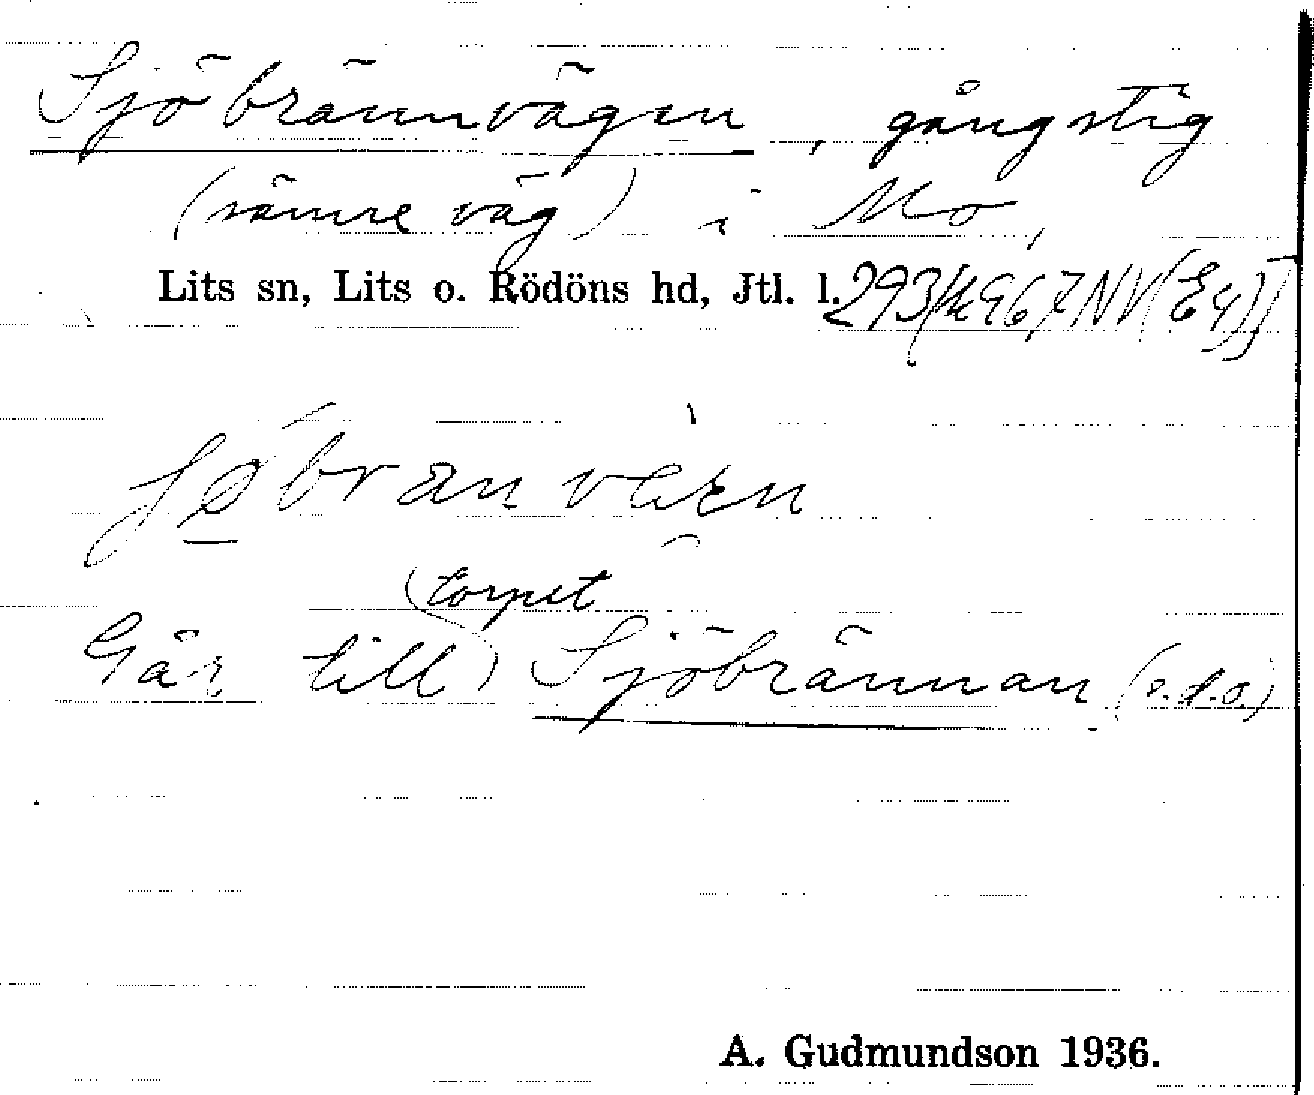 Sjöbrännvägen, gångstig
(sämre väg) i Mo,
Lits sn, Lits o. Rödöns hd, Jtl. l.
torpet
Går till Sjöbrännan (s.d.o.)
A. Gudmundson 1936.